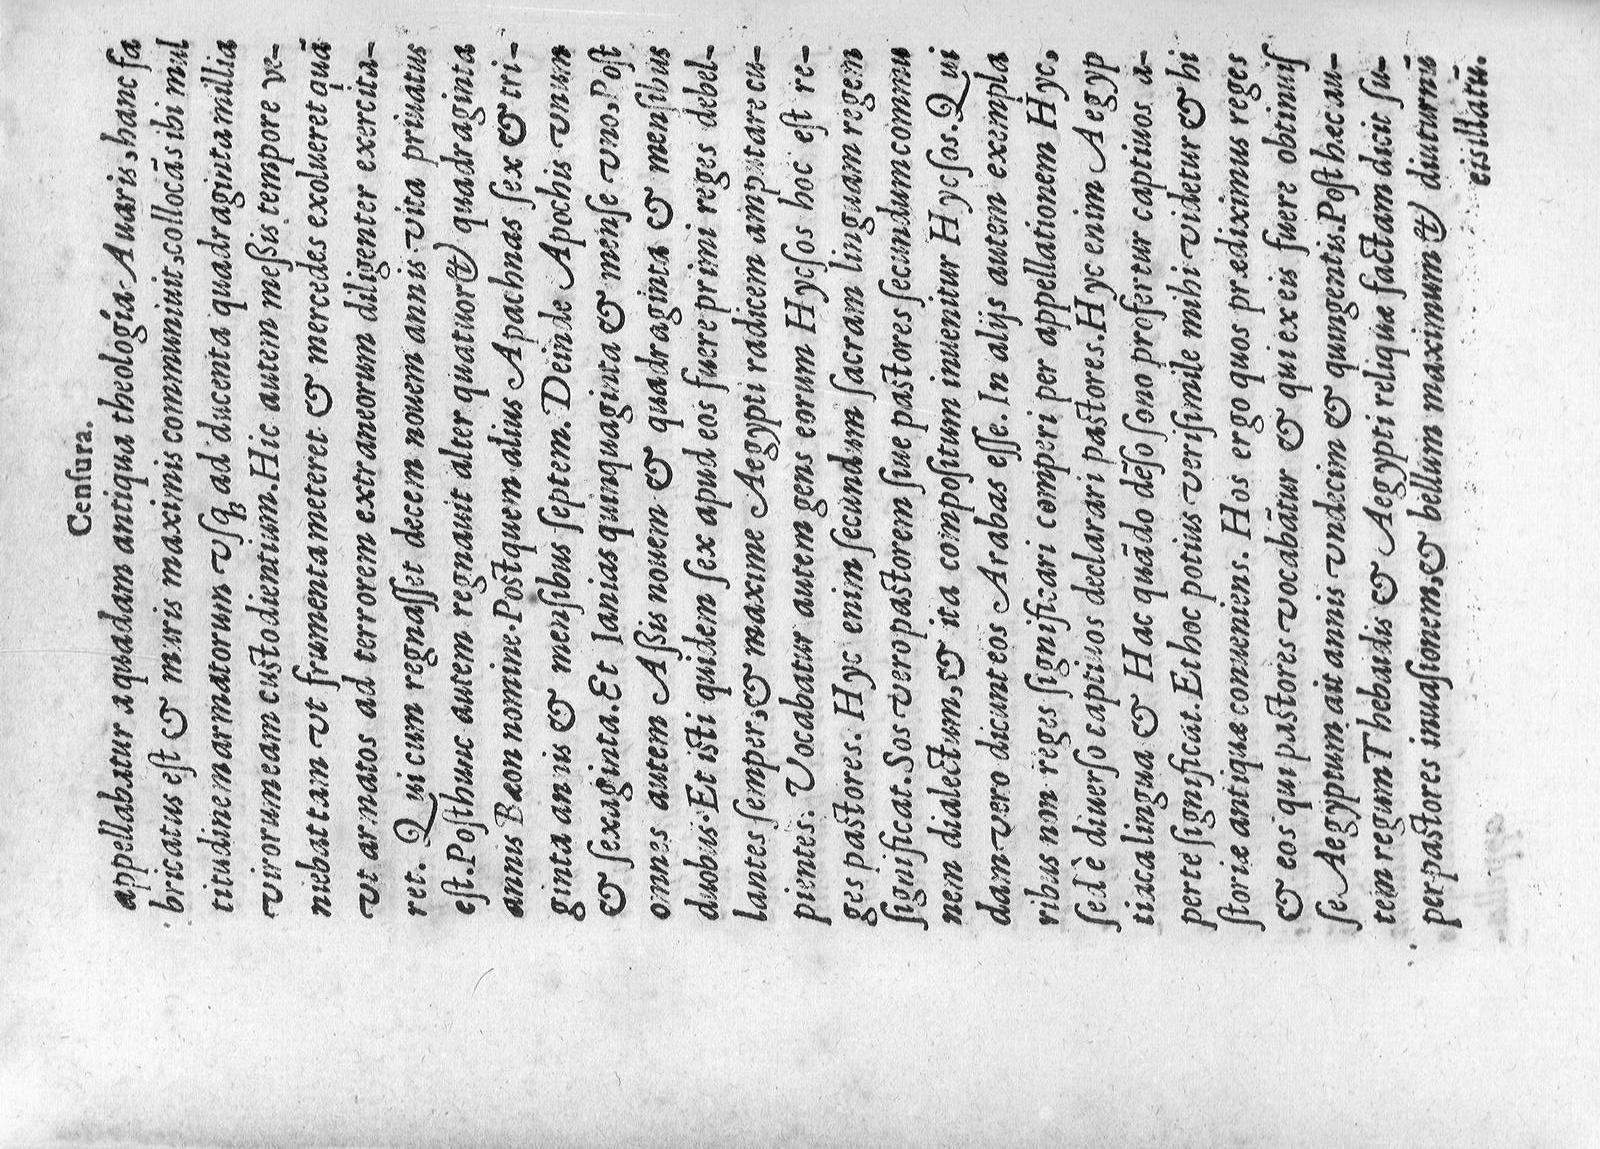 Cenſura.
appellabatur a quadam antiqua theologia. Auaris, hanc fa
bricatus eſt & muris maximis communiuit, collocãs ibi mul
titudinem armatorum vſqꝫ ad ducenta quadraginta millia
virorum eam cuſtodientium. Hic autem meßis tempore ve-
niebat tam vt frumenta meteret & mercedes exolueret quã
vt armatos ad terrorem extraneorum diligenter exercita-
ret. Qui cum regnaſſet decem nouem annis vita priuatus
eſt. Poſt hunc autem regnauit alter quatuor & quadraginta
annis Bæon nomine. Poſtquem alius Apachnas ſex & tri-
ginta annis & menſibus ſeptem. Deinde Apochis vnum
& ſexaginta. Et Ianias quinquaginta & menſe vno, Poſt
omnes autem Aßis nouem & quadraginta & menſibus
duobus. Et iſti quidem ſex apud eos fuere primi reges debel-
lantes ſemper, & maxime Aegypti radicem amputare cu-
pientes. Vocabatur autem gens eorum Hycſos hoc eſt re-
ges paſtores. Hyc enim ſecundum ſacram linguam regem
ſignificat. Sos vero paſtorem ſiue paſtores ſecundum commu
nem dialectum, & ita compoſitum inuenitur Hycſos. Qui
dam vero dicunt eos Arabas eſſe. In alijs autem exempla
ribus non reges ſignificari comperi per appellationem Hyc,
ſed è diuerſo captiuos declarari paſtores. Hyc enim Aegyp
tiaca lingua & Hac quãdo dẽſo ſono profertur captiuos a-
perte ſignificat. Et hoc potius veriſimile mihi videtur & hi
ſtoriæ antiquæ conueniens. Hos ergo quos prædiximus reges
& eos qui paſtores vocabãtur & qui ex eis fuere obtinuiſ
ſe Aegyptum ait annis vndecim & quingentis. Poſt hec au-
tem regum Thebaidis & Aegypti reliquæ factam dicit ſu-
per paſtores inuaſionem, & bellum maximum & diuturnũ
eis illatũ.